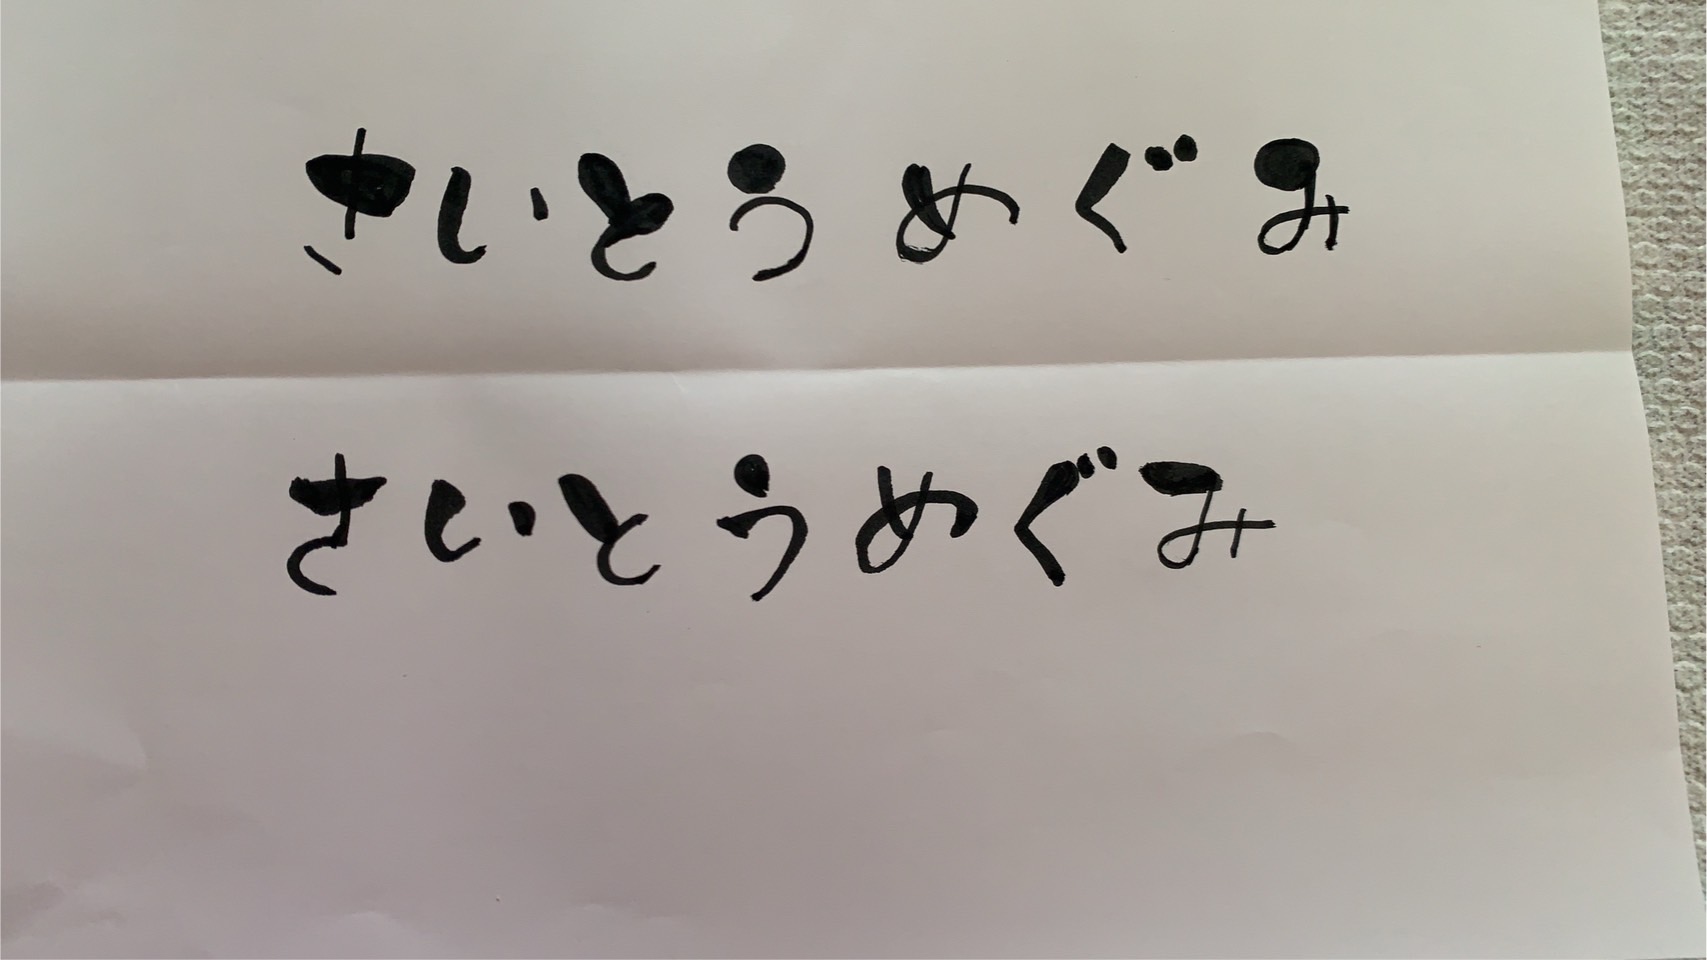 さいとうめぐみ
さいとうめぐみ